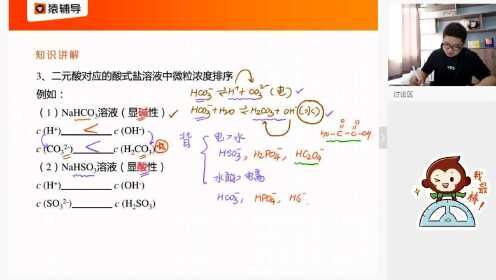 猿辅导
知识讲解
3、二元酸对应的酸式盐溶液中微粒浓度排序
例如：
(1) NaHCO₃溶液（显碱性）✓
c (H⁺) < c (OH⁻)
c (CO₃²⁻) < c (H₂CO₃)
(2) NaHSO₃溶液（显酸性）
c (H⁺)______c (OH⁻)
c (SO₃²⁻)______c (H₂SO₃)
HCO₃⁻ ⇌ H⁺ + CO₃²⁻ (电)
HCO₃⁻ + H₂O ⇌ H₂CO₃ + OH⁻ (水)
背
电>水
HSO₃⁻, H₂PO₄⁻, HC₂O₄⁻
HO-C-C-OH
O O
HCO₃⁻, HPO₄²⁻, HS⁻.
讨论区
我最棒!